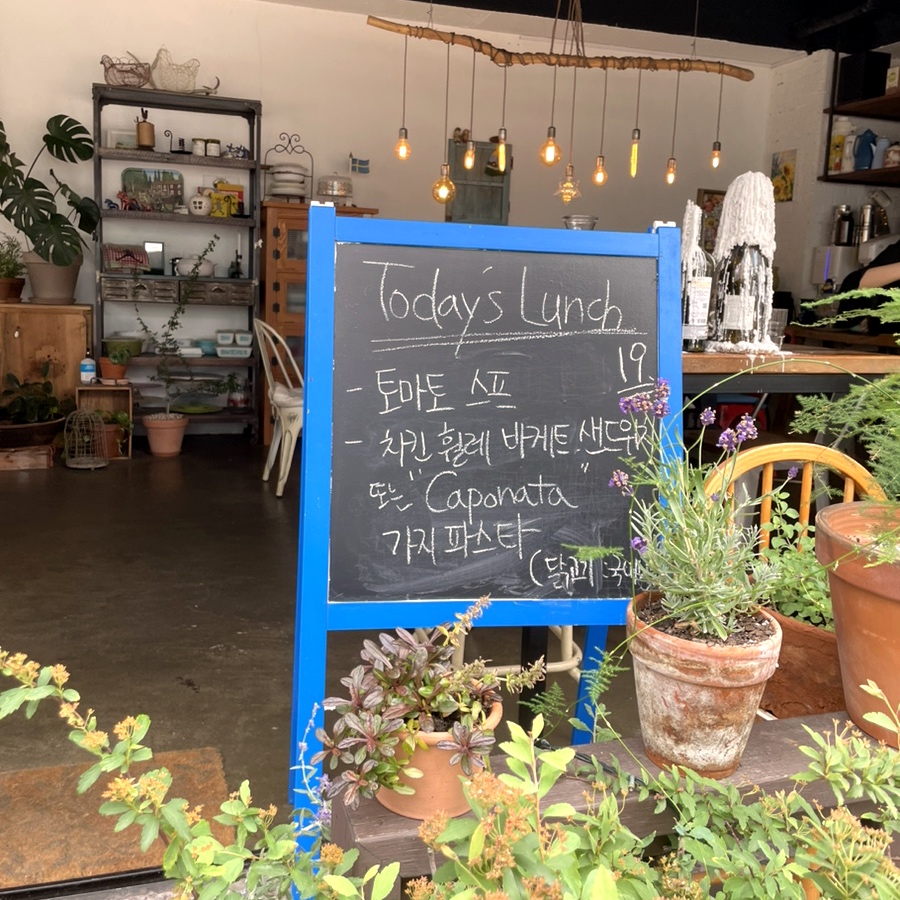 Today's Lunch
19.
- 토마토 스프
- 치킨 휠레 바게트 샌드위치
또는 "Caponata"
가지 파스타
(닭고기 :국내